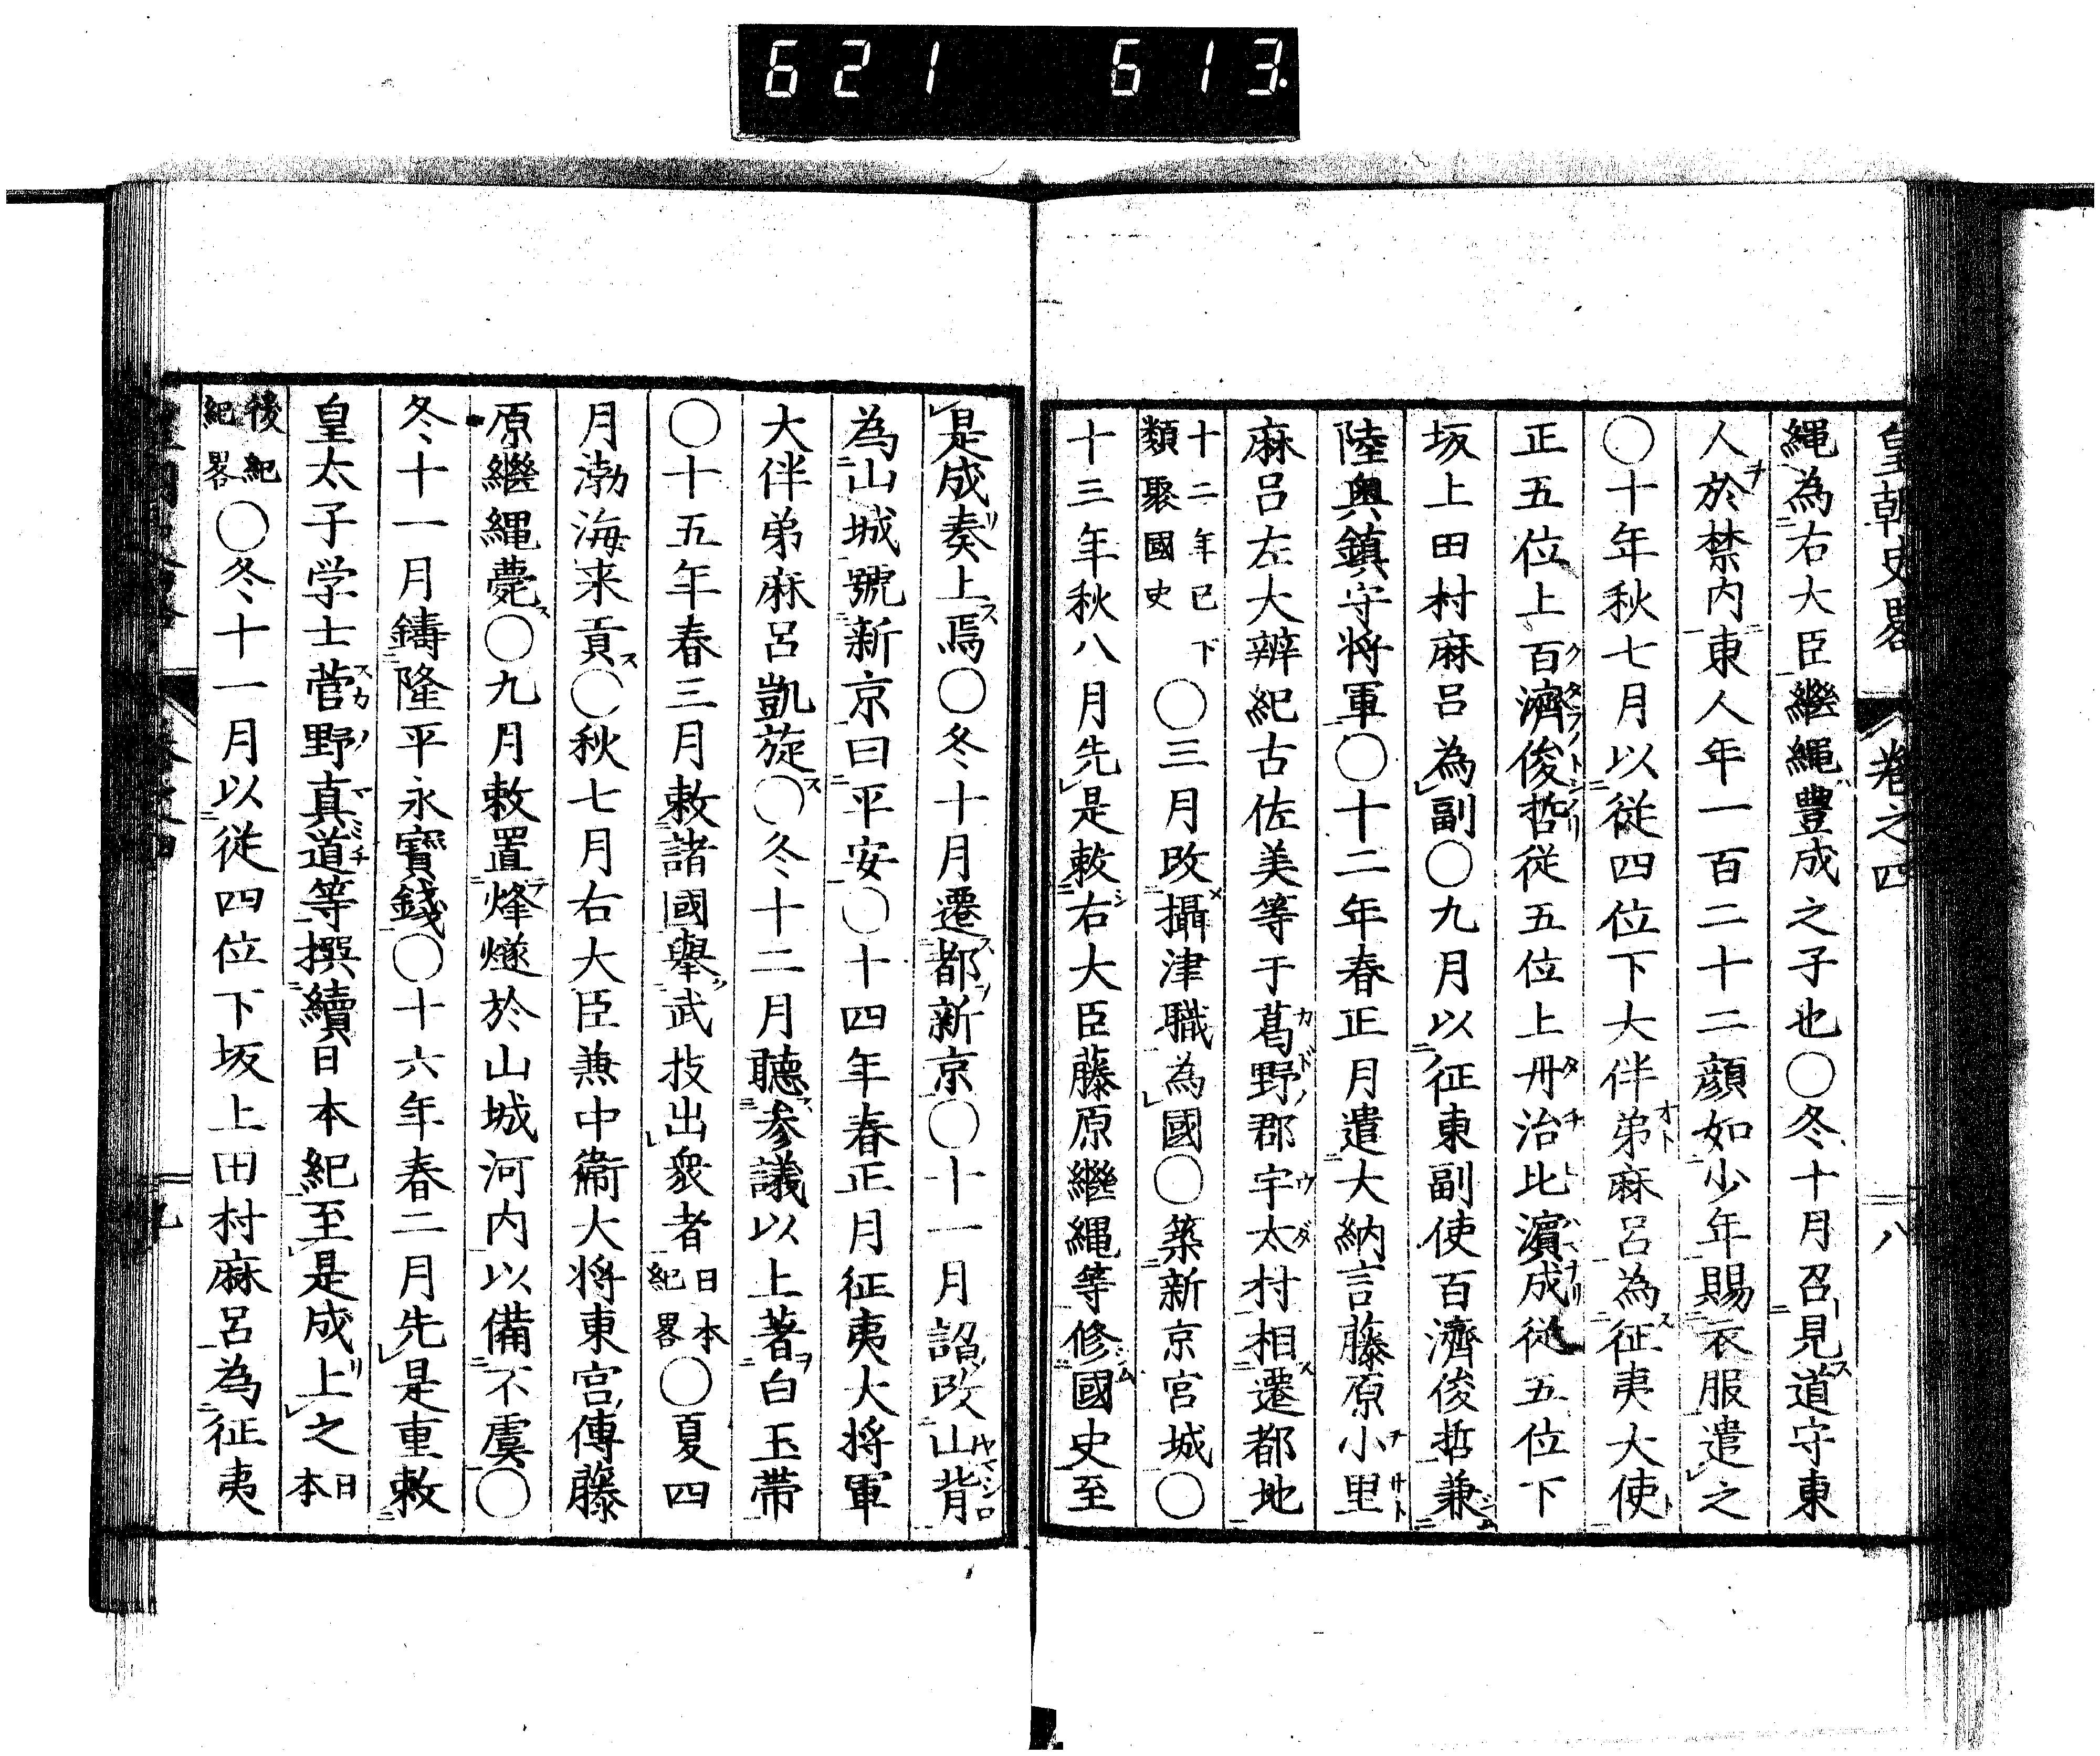 621 613
皇朝史畧 卷之四 八
繩為右大臣繼繩豊成之子也〇冬十月召見道守東
人於禁内東人年一百二十二顔如少年賜衣服遣之
〇十年秋七月以従四位下大伴弟麻呂為征夷大使
正五位上百濟俊哲従五位上丹治比濱成従五位下
坂上田村麻呂為副〇九月以征東副使百濟俊哲兼
陸奥鎮守将軍〇十二年春正月遣大納言藤原小里
麻呂左大辨紀古佐美等于葛野郡宇太村相遷都地
十二年已下類聚國史〇三月改攝津職為國〇築新京宮城〇
十三年秋八月先是敕右大臣藤原繼繩等修國史至
是成奏上焉〇冬十月遷都新京〇十一月詔改山背
為山城號新京曰平安〇十四年春正月征夷大将軍
大伴弟麻呂凱旋〇冬十二月聴参議以上著白玉帯
〇十五年春三月敕諸國舉武技出衆者日本紀畧〇夏四
月渤海来貢〇秋七月右大臣兼中衞大将東宮傳藤
原繼繩薨〇九月敕置烽燧於山城河内以備不虞〇
冬十一月鑄隆平永寳錢〇十六年春二月先是重敕
皇太子学士菅野真道等撰續日本紀至是成上之日本
後紀紀畧〇冬十一月以従四位下坂上田村麻呂為征夷